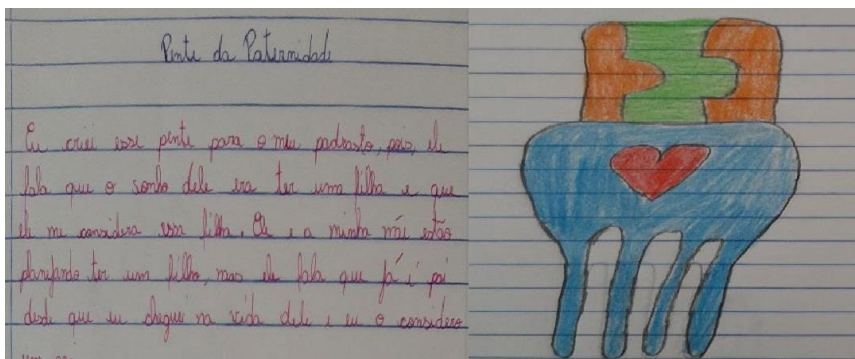 Pente da Paternidade
Eu criei esse pente para o meu padrasto, pois, ele
fala que o sonho dele era ter uma filha e que
ele me considera essa filha. Ele e a minha mãe estão
planejando ter um filho, mas ele fala que já é pai
desde que eu cheguei na vida dele e eu o considero